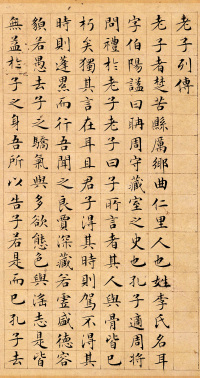 老子列傳
老子者楚苦縣厲鄉曲仁里人也姓李氏名耳
字伯陽謚曰聃周守藏室之史也孔子適周將
問禮於老子老子曰子所言者其人與骨皆已
朽矣獨其言在耳且君子得其時則駕不得其
時則蓬累而行吾聞之良賈深藏若虛盛德容
貌若愚去子之驕氣與多欲態色與淫志是皆
無益於子之身吾所以告子若是而已孔子去